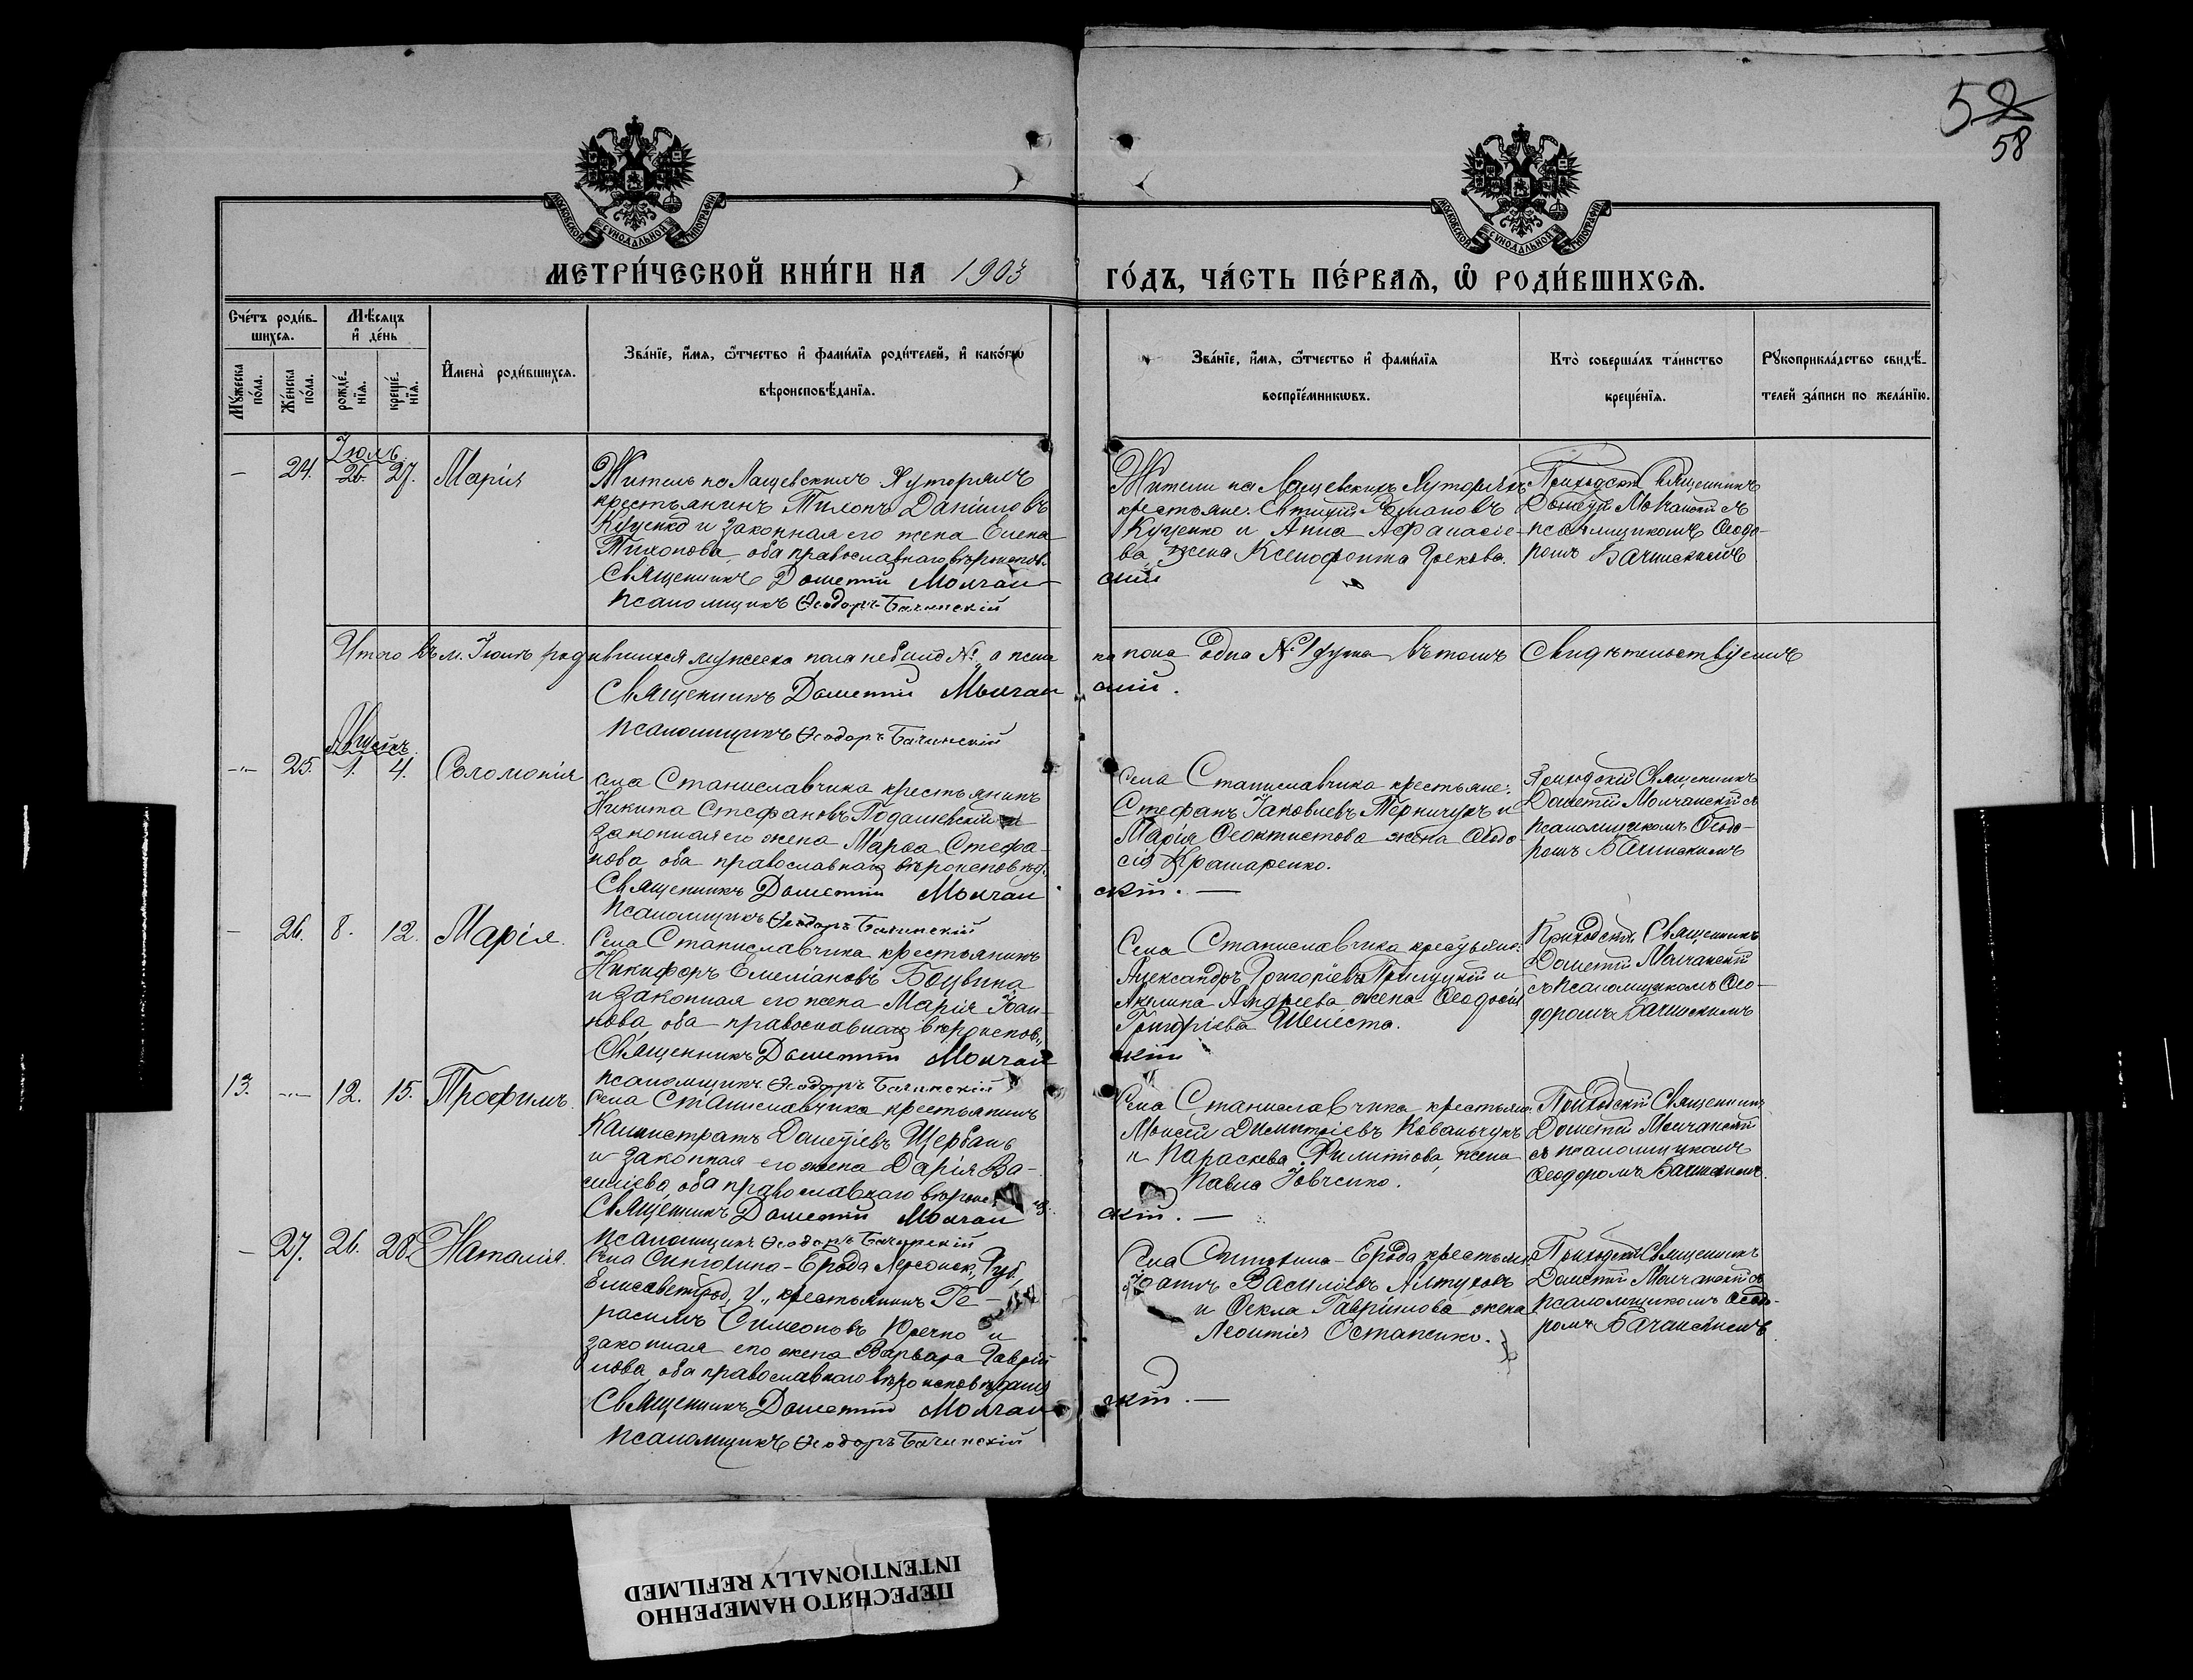 52
58
МОСКОВСКОЙ СѴНОДАЛЬНОЙ ТИПОГРАФІИ
МОСКОВСКОЙ СѴНОДАЛЬНОЙ ТИПОГРАФІИ
МЕТРИ́ЧЕСКОЙ КНИ́ГИ НА 1903
ГО́ДЪ, ЧА́СТЬ ПЕ́РВАѦ, Ѡ҆ РОДИ́ВШИХСѦ.
Сче́тъ роди́в-
шихсѧ.
Мѣ́сѧцъ
и҆ де́нь
Мꙋ́жеска
по́ла.
Же́нска
по́ла.
рожде́-
нїѧ.
креще́-
нїѧ.
И҆мена̀ роди́вшихсѧ.
Зва́нїе, и҆́мѧ, ѻ҆́тчество и҆ фами́лїѧ роди́телей, и҆ како́гѡ
вѣроисповѣ́данїѧ.
Зва́нїе, и҆́мѧ, ѻ҆́тчество и҆ фами́лїѧ
воспрїе́мникѡвъ.
Кто̀ соверша́лъ та́инство
креще́нїѧ.
Рꙋкоприкла́дство свидѣ́-
телей за́писи по жела́нїю.
Іюль
— 24. 26. 27. Марія
Житель на Лащевскихъ Хуторахъ
крестьянинъ Тихонъ Даніиловъ
Куценко и законная его жена Елена
Тихонова, оба православнаго вѣроиспов.
Священникъ Дометій Молчан-
псаломщикъ Ѳеодоръ Бачинскій
Жители на Лащевскихъ Хуторахъ
крестьяне:
Куценко и Анна Афанасіе-
ва, жена Ксенофонта Грекова.
скій
Приходскій Священникъ
Дометій Молчанскій съ
псаломщикомъ Ѳеодо-
ромъ Бачинскимъ
Итого въ м. Іюлѣ родившихся мужеска пола небыло №, а жен
на пола одна № 1 душа въ томъ свидѣтельствуемъ
Священникъ Дометій Молчан
скій.
псаломщикъ Ѳеодоръ Бачинскій
Августъ
-„- 25. 1. 4. Соломонія
села Станиславчика крестьянинъ
Никита Стефановъ Подашевскій и
законная его жена Марѳа Стефа-
нова оба православнаго вѣроисповѣд.
Священникъ Дометій Молчан
псаломщикъ Ѳеодоръ Бачинскій
Села Станиславчика крестьяне:
Стефанъ Іаковлевъ Терничукъ и
Марія Ѳеоктистова жена Ѳеодо-
сія Крамаренко.
скій. —
Приходскій Священникъ
Дометій Молчанскій съ
псаломщикомъ Ѳеодо-
ромъ Бачинскимъ
— 26. 8. 12. Марія.
Села Станиславчика крестьянинъ
Никифоръ Емеліановъ Боцвина
и законная его жена Марія Іоан-
нова, оба православнаго вѣроиспов„
Священникъ Дометій Молчан
псаломщикъ Ѳеодоръ Бачинскій
Села Станиславчика крестьяне:
Александръ Григоріевъ Прилуцкій и
Акилина Андреева жена Ѳеодосія
Григоріева Шелеста.
скій
Приходскій Священникъ
Дометій Молчанскій
съ псаломщикомъ Ѳео-
доромъ Бачинскимъ
13. -„- 12. 15. Трофимъ.
Села Станиславчика крестьянинъ
Каллистратъ Дометіевъ Щербань
и законная его жена Дарія Ва-
силіева, оба православнаго вѣроис
Священникъ Дометій Молчан
псаломщикъ Ѳеодоръ Бачинскій
Села Станиславчика крестьяне:
Моисей Димитріевъ Ковальчукъ
и Параскева Филиппова, жена
Павла Іовченко.
скій. —
Приходскій Священникъ
Дометій Молчанскій
съ псаломщикомъ
Ѳеодоромъ Бачинскимъ.
— 27. 26. 28. Наталія.
Села Синюхина-Брода Херсонск„ Губ„
Елисаветград„ у„ крестьянинъ Ге-
расимъ Симеоновъ и
законная его жена Варвара Гаврі-
илова, оба православнаго вѣроисповѣданія
Священникъ Дометій Молчан
псаломщикъ Ѳеодоръ Бачинскій
Села Синюхина-Брода крестьяне
Іоаннъ Василіевъ Алтуховъ
и Ѳекла Гавріилова жена
Леонтія Остапенко.
скій. —
Приходскій Священникъ
Дометій Молчанскій съ
псаломщикомъ Ѳеодо-
ромъ Бачинскимъ
ПЕРЕСНЯТО НАМЕРЕННО
INTENTIONALLY REFILMED